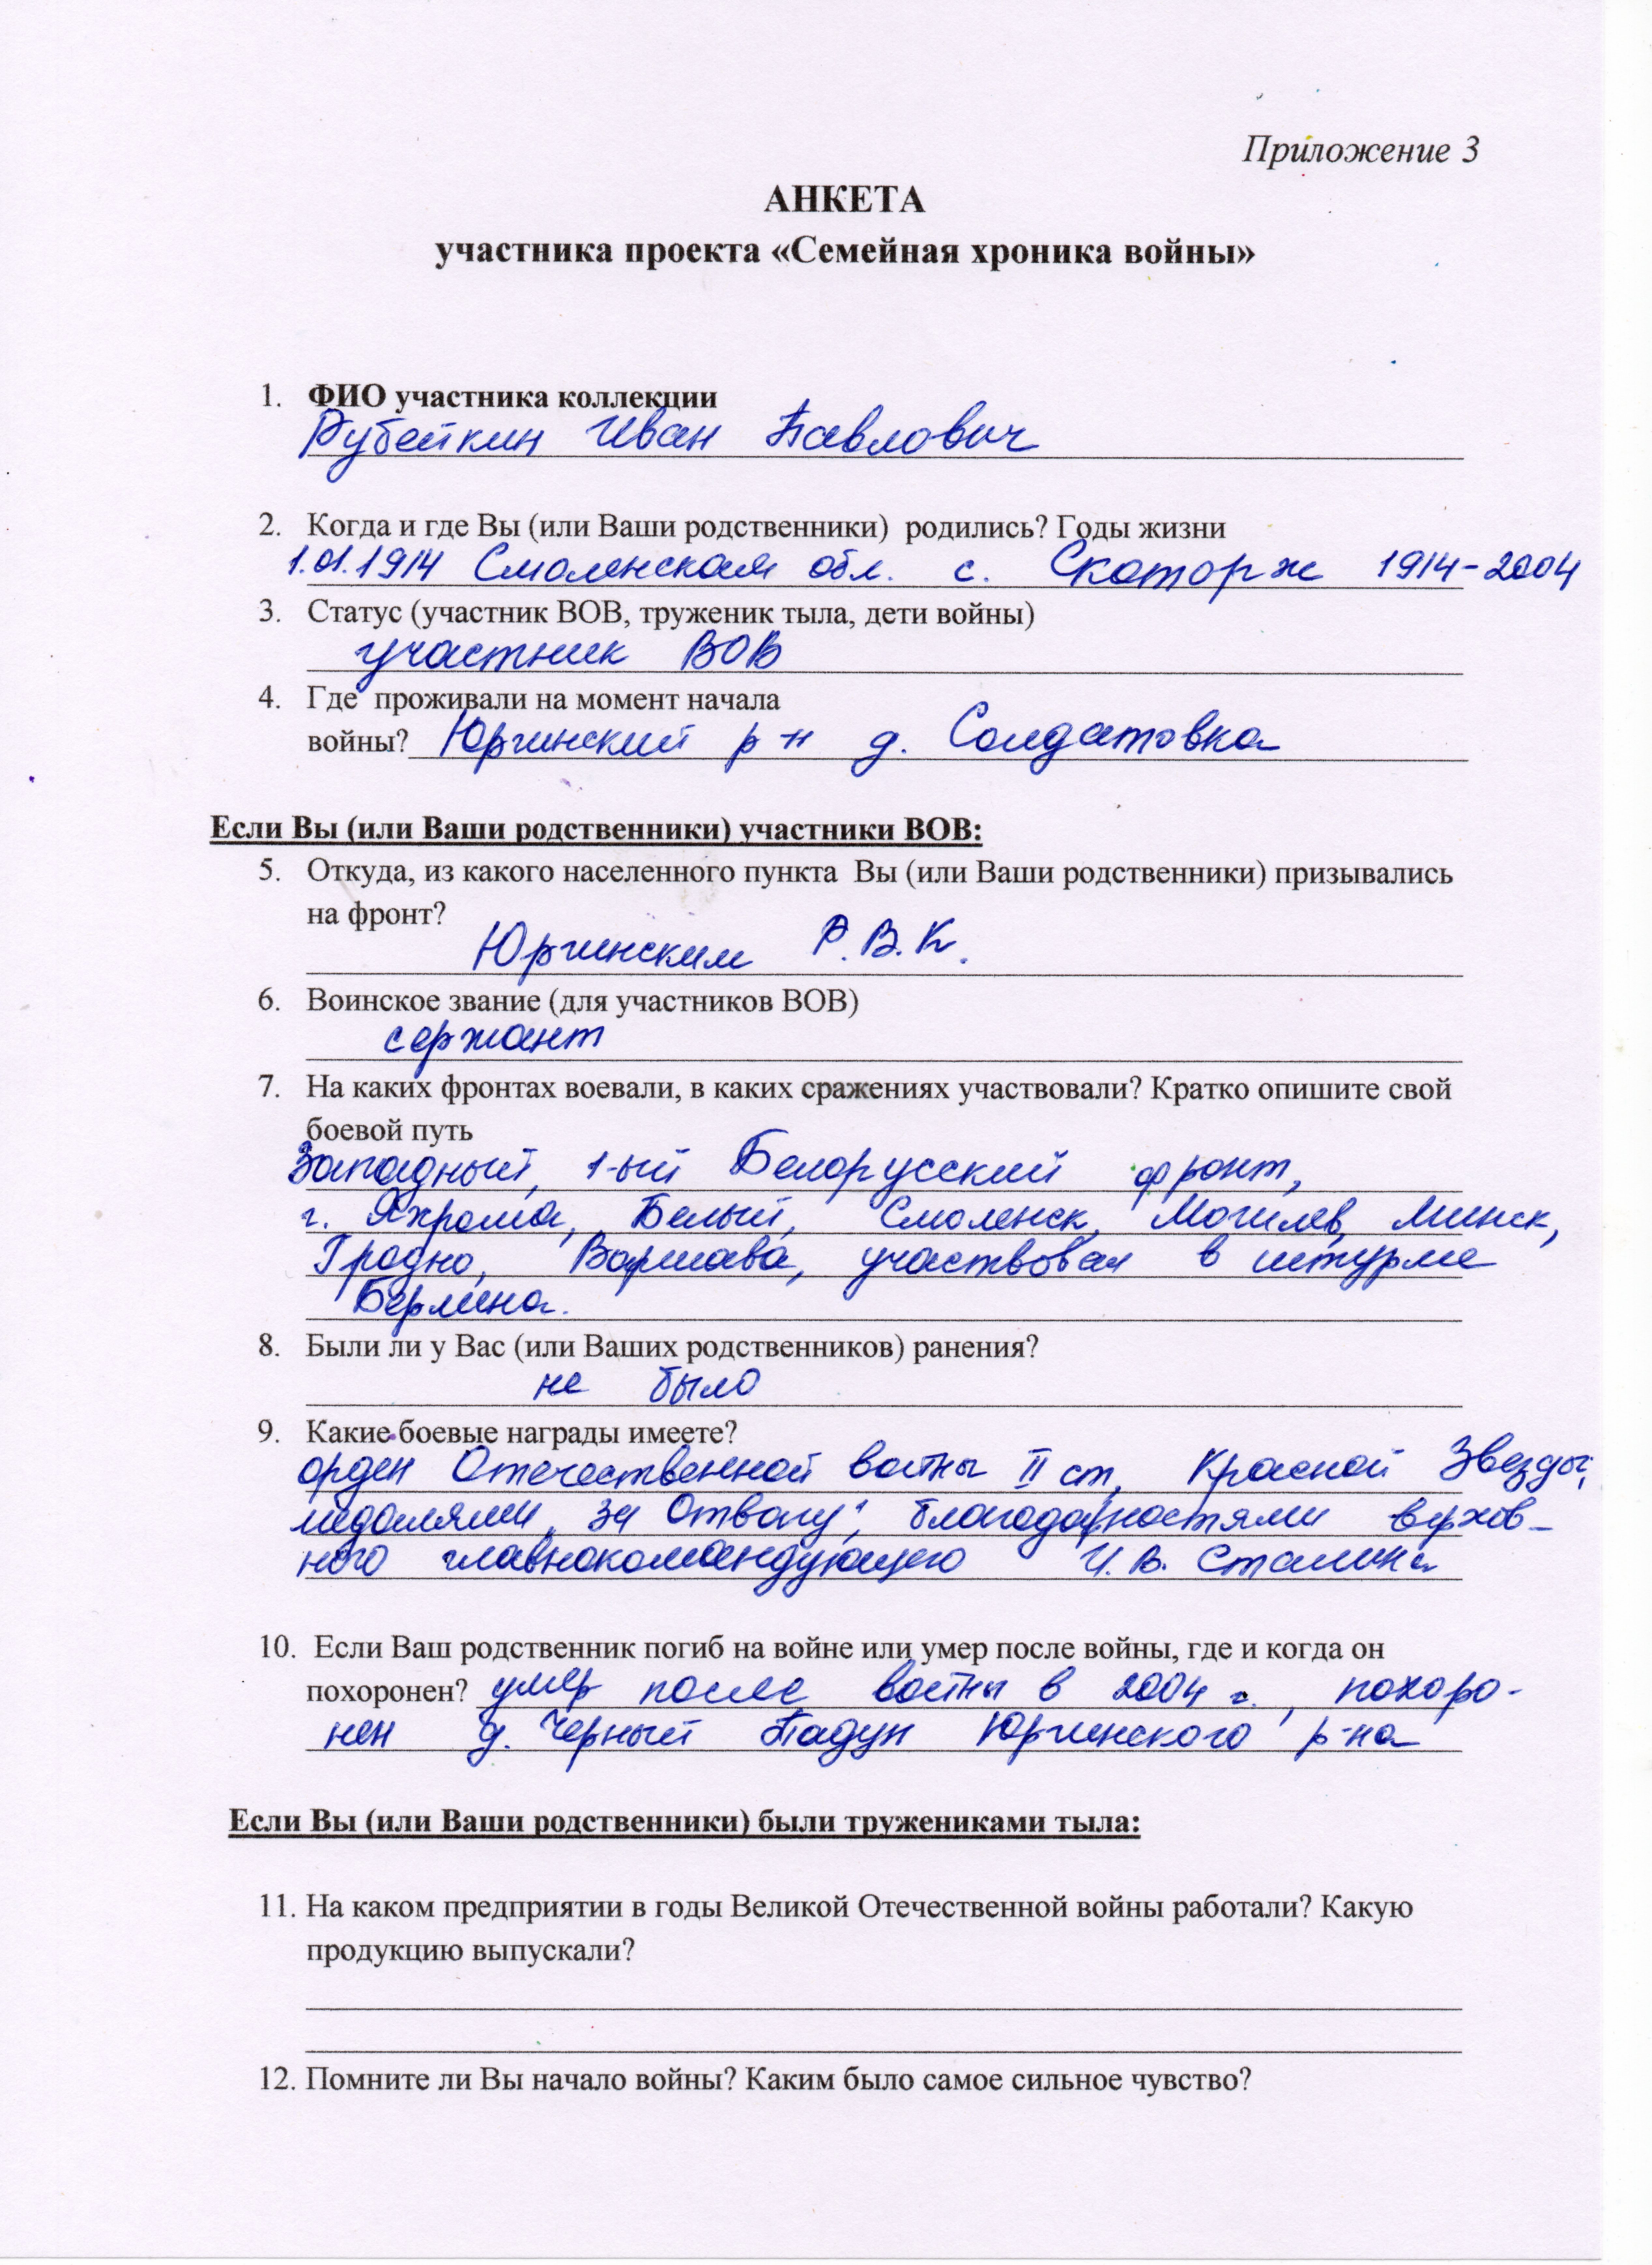 Приложение 3
АНКЕТА
участника проекта «Семейная хроника войны»
1. ФИО участника коллекции
Рубейкин Иван Павлович
2. Когда и где Вы (или Ваши родственники) родились? Годы жизни
1.01.1914 Смоленская обл. с. Скоторж 1914-2004
3. Статус (участник ВОВ, труженик тыла, дети войны)
участник ВОВ
4. Где проживали на момент начала
войны? Юргинский р-н д. Солдатовка
Если Вы (или Ваши родственники) участники ВОВ:
5. Откуда, из какого населенного пункта Вы (или Ваши родственники) призывались
на фронт?
Юргинским Р.В.К.
6. Воинское звание (для участников ВОВ)
сержант
7. На каких фронтах воевали, в каких сражениях участвовали? Кратко опишите свой
боевой путь
Западный, 1-ый Белорусский фронт,
г. Яхрома, Белый, Смоленск, Могилев, Минск,
Гродно, Варшава, участвовал в штурме
Берлина.
8. Были ли у Вас (или Ваших родственников) ранения?
не было
9. Какие боевые награды имеете?
орден Отечественной войны II ст, Красной Звезды,
медалями „за Отвагу", благодарностями верхов-
ного главнокомандующего И.В. Сталина
10. Если Ваш родственник погиб на войне или умер после войны, где и когда он
похоронен? умер после войны в 2004 г., похоро-
нен д. Черный Падун Юргинского р-на
Если Вы (или Ваши родственники) были тружениками тыла:
11. На каком предприятии в годы Великой Отечественной войны работали? Какую
продукцию выпускали?
12. Помните ли Вы начало войны? Каким было самое сильное чувство?